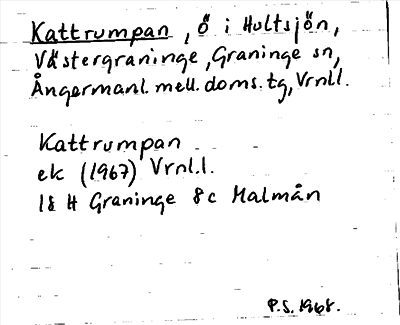 Kattrumpan, ö i Hultsjön,
Västergraninge, Graninge sn,
Ångermanl. mell. doms. tg, Vrnll.
Kattrumpan
ek (1967) Vrnl.l.
18 H Graninge 8c Malmån
P.S. 1968.